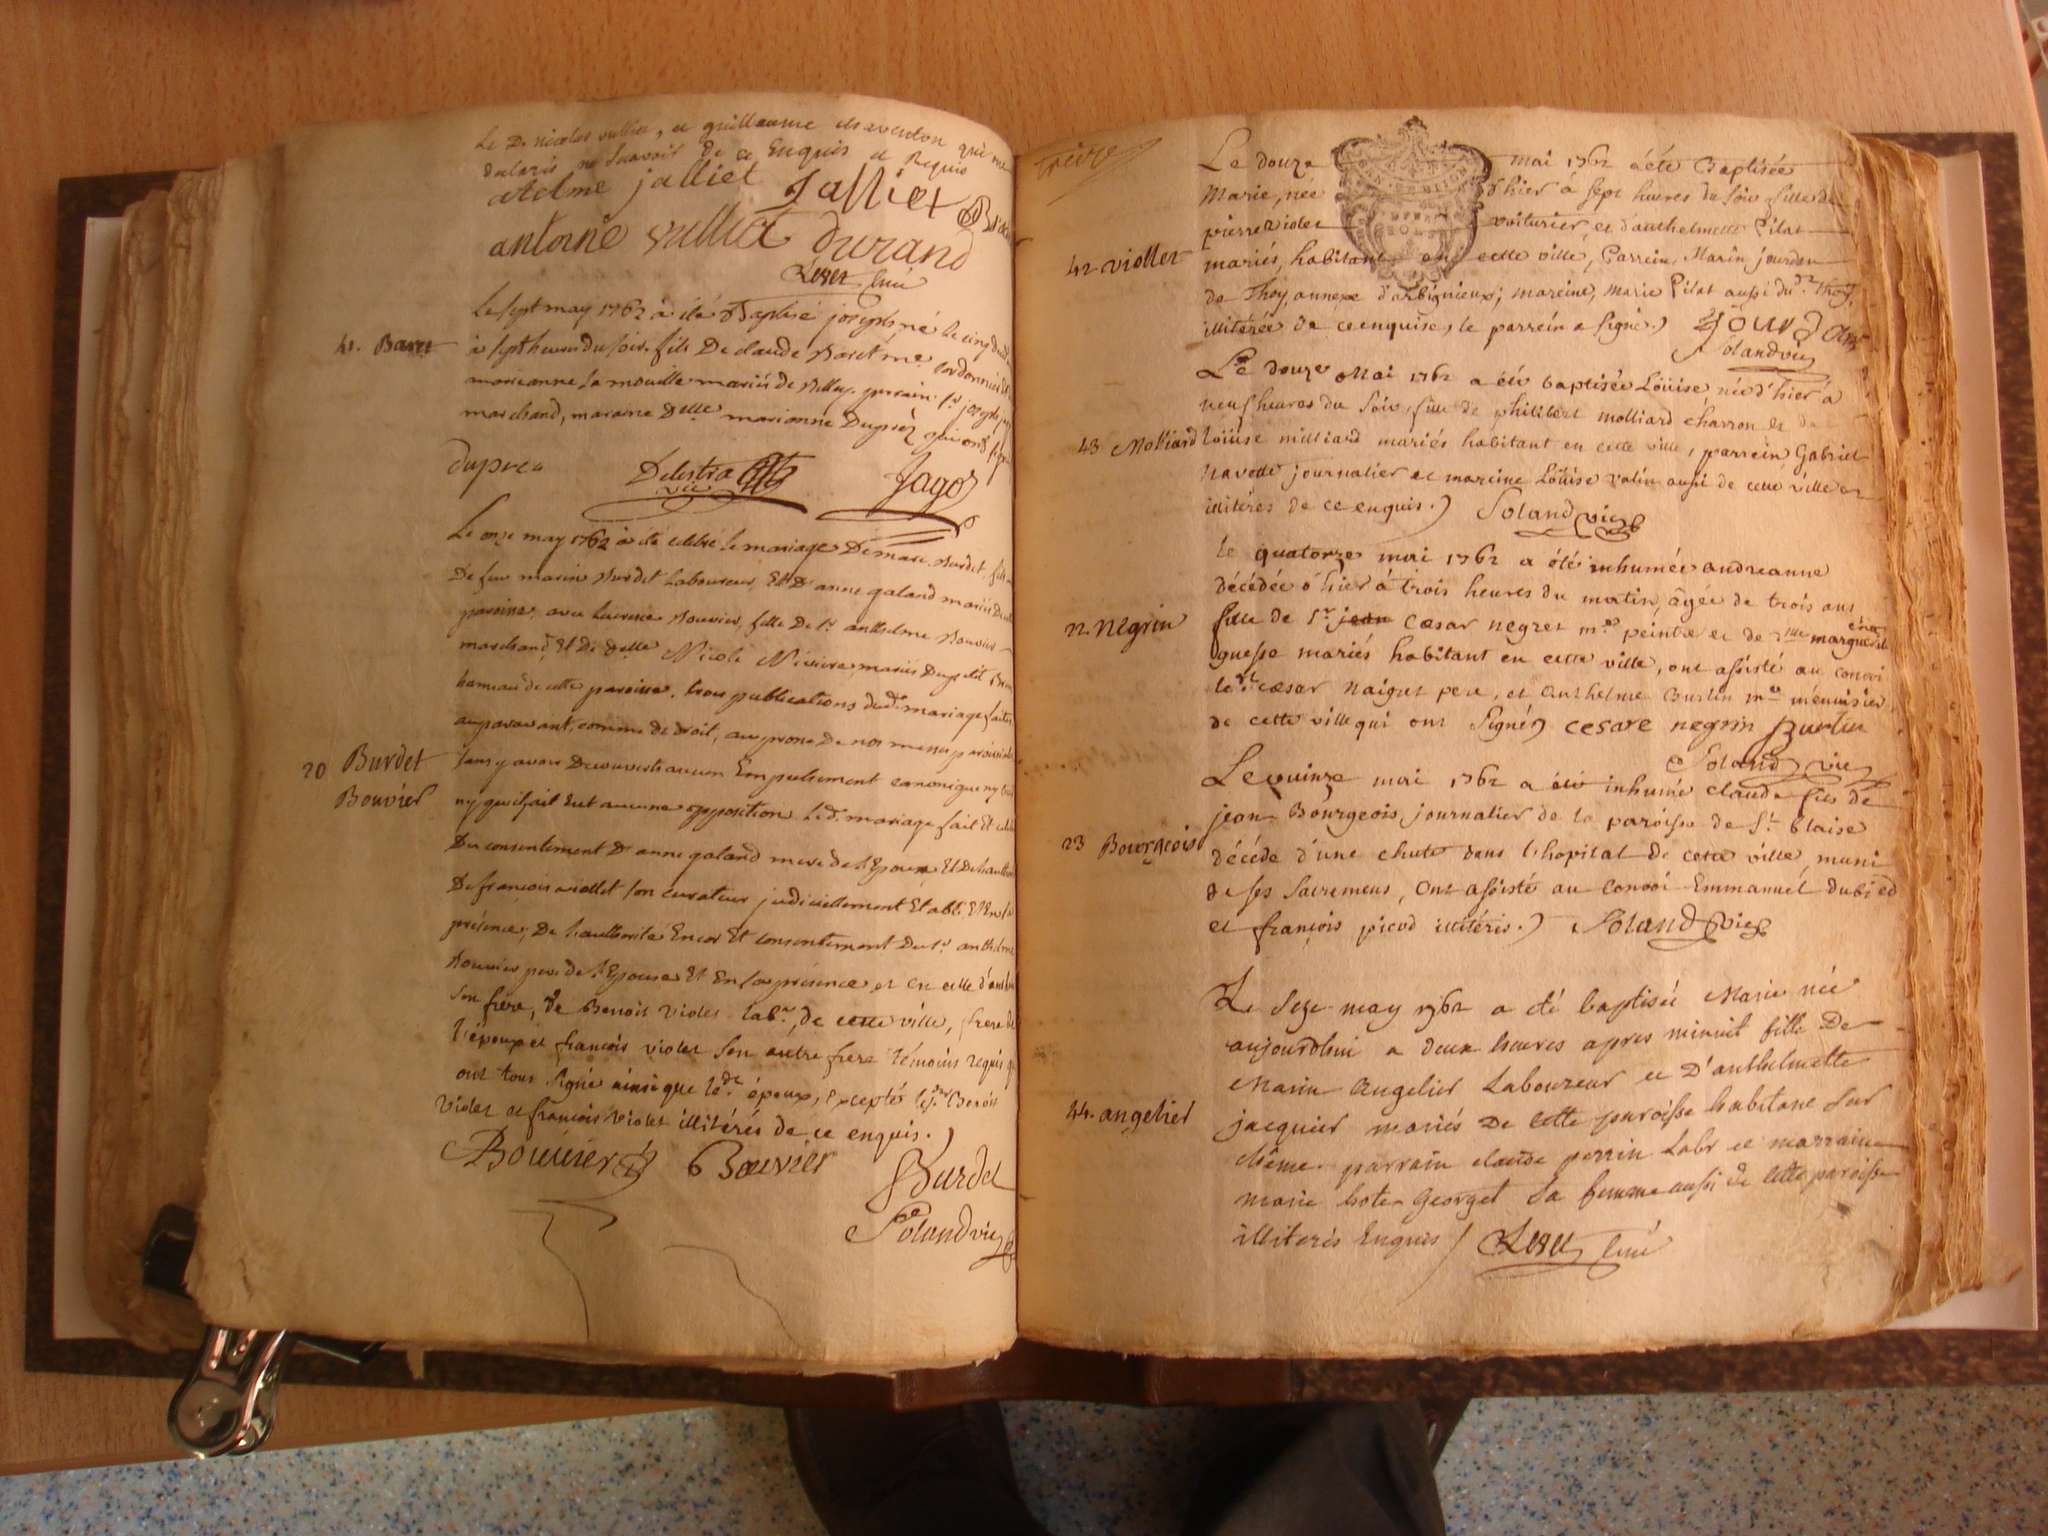 Le Sr nicolas vulliet, et guillaume
declaré ne scavoir de ce Enquis et Requis
Aelme jalliet Jalliet
antoine vulliet durand
curé
Le sept may 1762 a été Baptisé joseph, né le cinq
41. Baret
à sept heures du soir, fils De claude Baret me Cordonnier
marianne la mouille mariés de Belley, parrain Sr joseph
marchand, maraine Delle marianne Duprez qui ont signé
dupré Delestra vic Jago
Le onze may 1762 a été célébré le mariage De marc Burdet, fils
De feu marin Burdet Laboureur, Et D'anne galand mariés
paroisse, avec lucrece Bouvier, fille De Sr anthelme Bouvier
marchand, Et De Delle Nicole mariés Du petit
hameau de cette paroisse, trois publications dudt mariage faites
auparavant, comme de droit, aux prones De nos messes paroissiales
20 Burdet
Bouvier
sans y avoir Decouvert aucun Empechement canonique ny
ny qu'il y ait Eut aucune opposition. led. mariage fait Et
Du consentement D'anne galand mere de l'Epoux, Et De
De françois viollet son curateur judiciellement Etabli Et En sa
présence, De l'authorité Encor Et consentement Du Sr anthelme
Bouvier pere de l'Epouse Et En sa présence, et en celle d'
son frere, de Benoit violet labr, de cette ville, frere de
l'époux et françois violet son autre frere témoins requis
ont tous signé ainsi que ledt époux, excepté lesd. Benoit
violet et françois violet illitérés de ce enquis.)
Bouvier Bouvier Burdet
Soland vic
Treize
Le douze mai 1762 a été Baptisée
Marie, née d'hier à sept heures du soir fille de
pierre violet voiturier et d'anthelmette Pilat
42 viollet
mariés, habitant en cette ville, Parrein, Marin jourdan
de Thoy, annexe d'arbignieux; mareine, marie Pilat aussi dudt Thoy,
illitérée de ce enquise, le parrein a signé.) Jourdan
Soland vic
Le douze Mai 1762 a été baptisée Louise, née d'hier à
neuf heures du soir, fille de philibert molliard charron et de
43 Molliard
louise milliard mariés habitant en cette ville, parrein Gabriel
Navette journalier et mareine Louise valin aussi de cette ville et
illitérés de ce enquis.) Soland vic
le quatorze mai 1762 a été inhumée andreanne
décédée d'hier à trois heures du matin, âgée de trois ans
22. Negrin
fille de Sr jean cæsar negret me peintre et de Dlle marguerite
guesse mariés habitant en cette ville, ont assisté au convoi
ledt cæsar naigret pere, et anthelme Burtin me menuisier
de cette ville qui ont signé) cesare negrin Burtin
Soland vic
Le quinze mai 1762 a été inhumé claude fils de
jean Bourgeois, journalier de la paroisse de St Blaise
23 Bourgeois
décédé d'une chute dans l'hopital de cette ville, muni
de ses sacremens, ont assisté au convoi Emmanuel dubied
et françois picod illitérés.) Soland vic
Le seze may 1762 a été baptisée Marie née
aujourdhui a deux heures apres minuit fille De
Marin Angelier Laboureur et D'anthelmette
44. angelier
jacquier mariés De cette paroisse habitant sur
chême. parrain claude perrin Labr et marraine
marie hote Georget sa femme aussi de cette paroisse
illiterés Enquis / curé